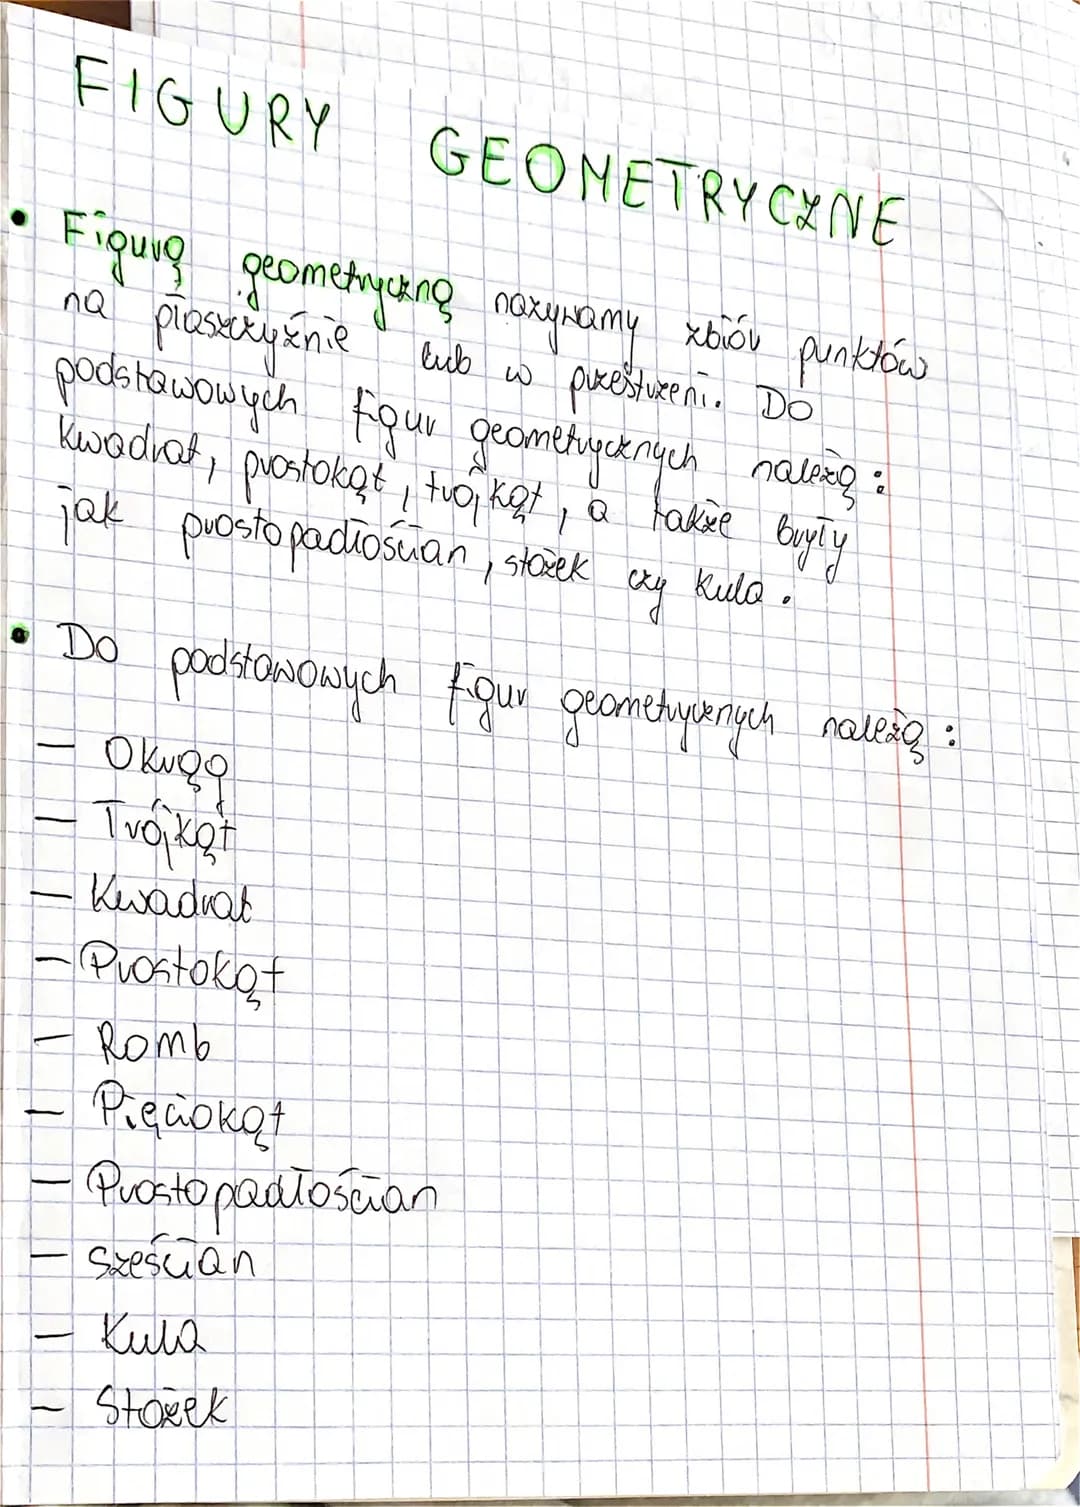 FIGURY GEOMETRYCZNE
• Figurą geometryczną nazywamy zbiór punktów
na płaszczyźnie lub w przestrzeni. Do
podstawowych figur geometrycznych należą:
kwadrat, prostokąt, trójkąt, a także bryły
jak prostopadłościan, stożek czy kula.
• Do podstawowych figur geometrycznych należą:
– Okrąg
– Trójkąt
– Kwadrat
– Prostokąt
– Romb
– Pięciokąt
– Prostopadłościan
– Sześcian
– Kula
– Stożek